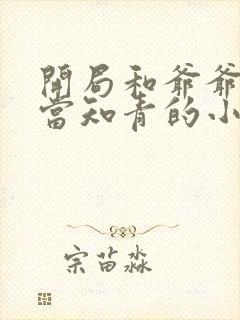 開局和爺爺
當知青的小
宗苗淼